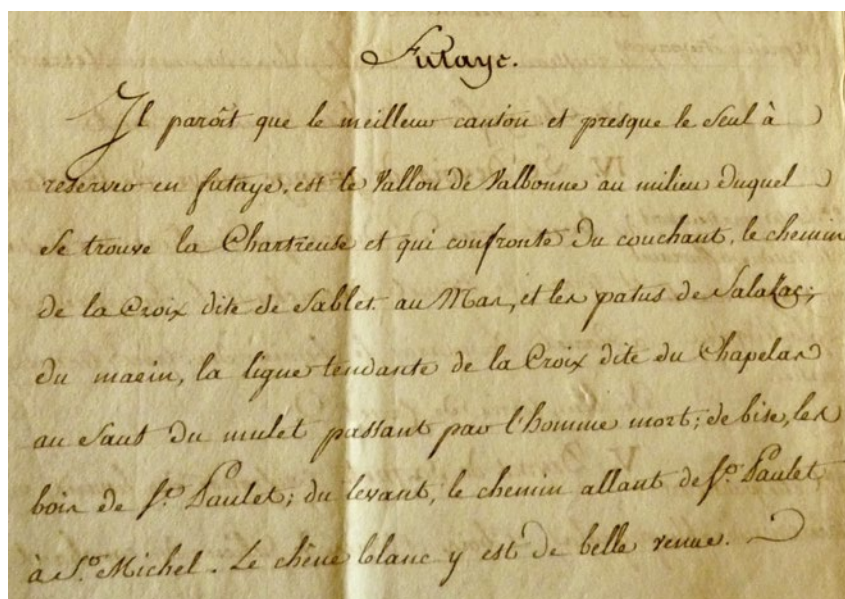 Futaye.
Il paroît que le meilleur canton et presque le seul à
reserver en futaye, est le Vallon de Valbonne au milieu duquel
se trouve la Chartreuse et qui confronte du couchant, le chemin
de la Croix dite de Sablet au Mas, et les patus de Salazac;
du marin, la ligne tendante de la Croix dite du Chapelas
au Saut du mulet passant par l'homme mort; de bise, les
bois de St. Paulet; du levant, le chemin allant de St. Paulet
à St. Michel. Le chêne blanc y est de belle venue.